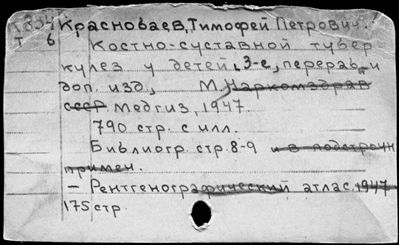 Краснобаев, Тимофей Петрович.
Костно-суставной тубер
кулез у детей. 3-е, перераб. и
доп. изд., М. Наркомздрав
СССР Медгиз, 1947
790 стр. с илл.
Библиогр. стр. 8-9 и в подстрочн
примеч.
— Рентгенографический атлас. 1947
175 стр.